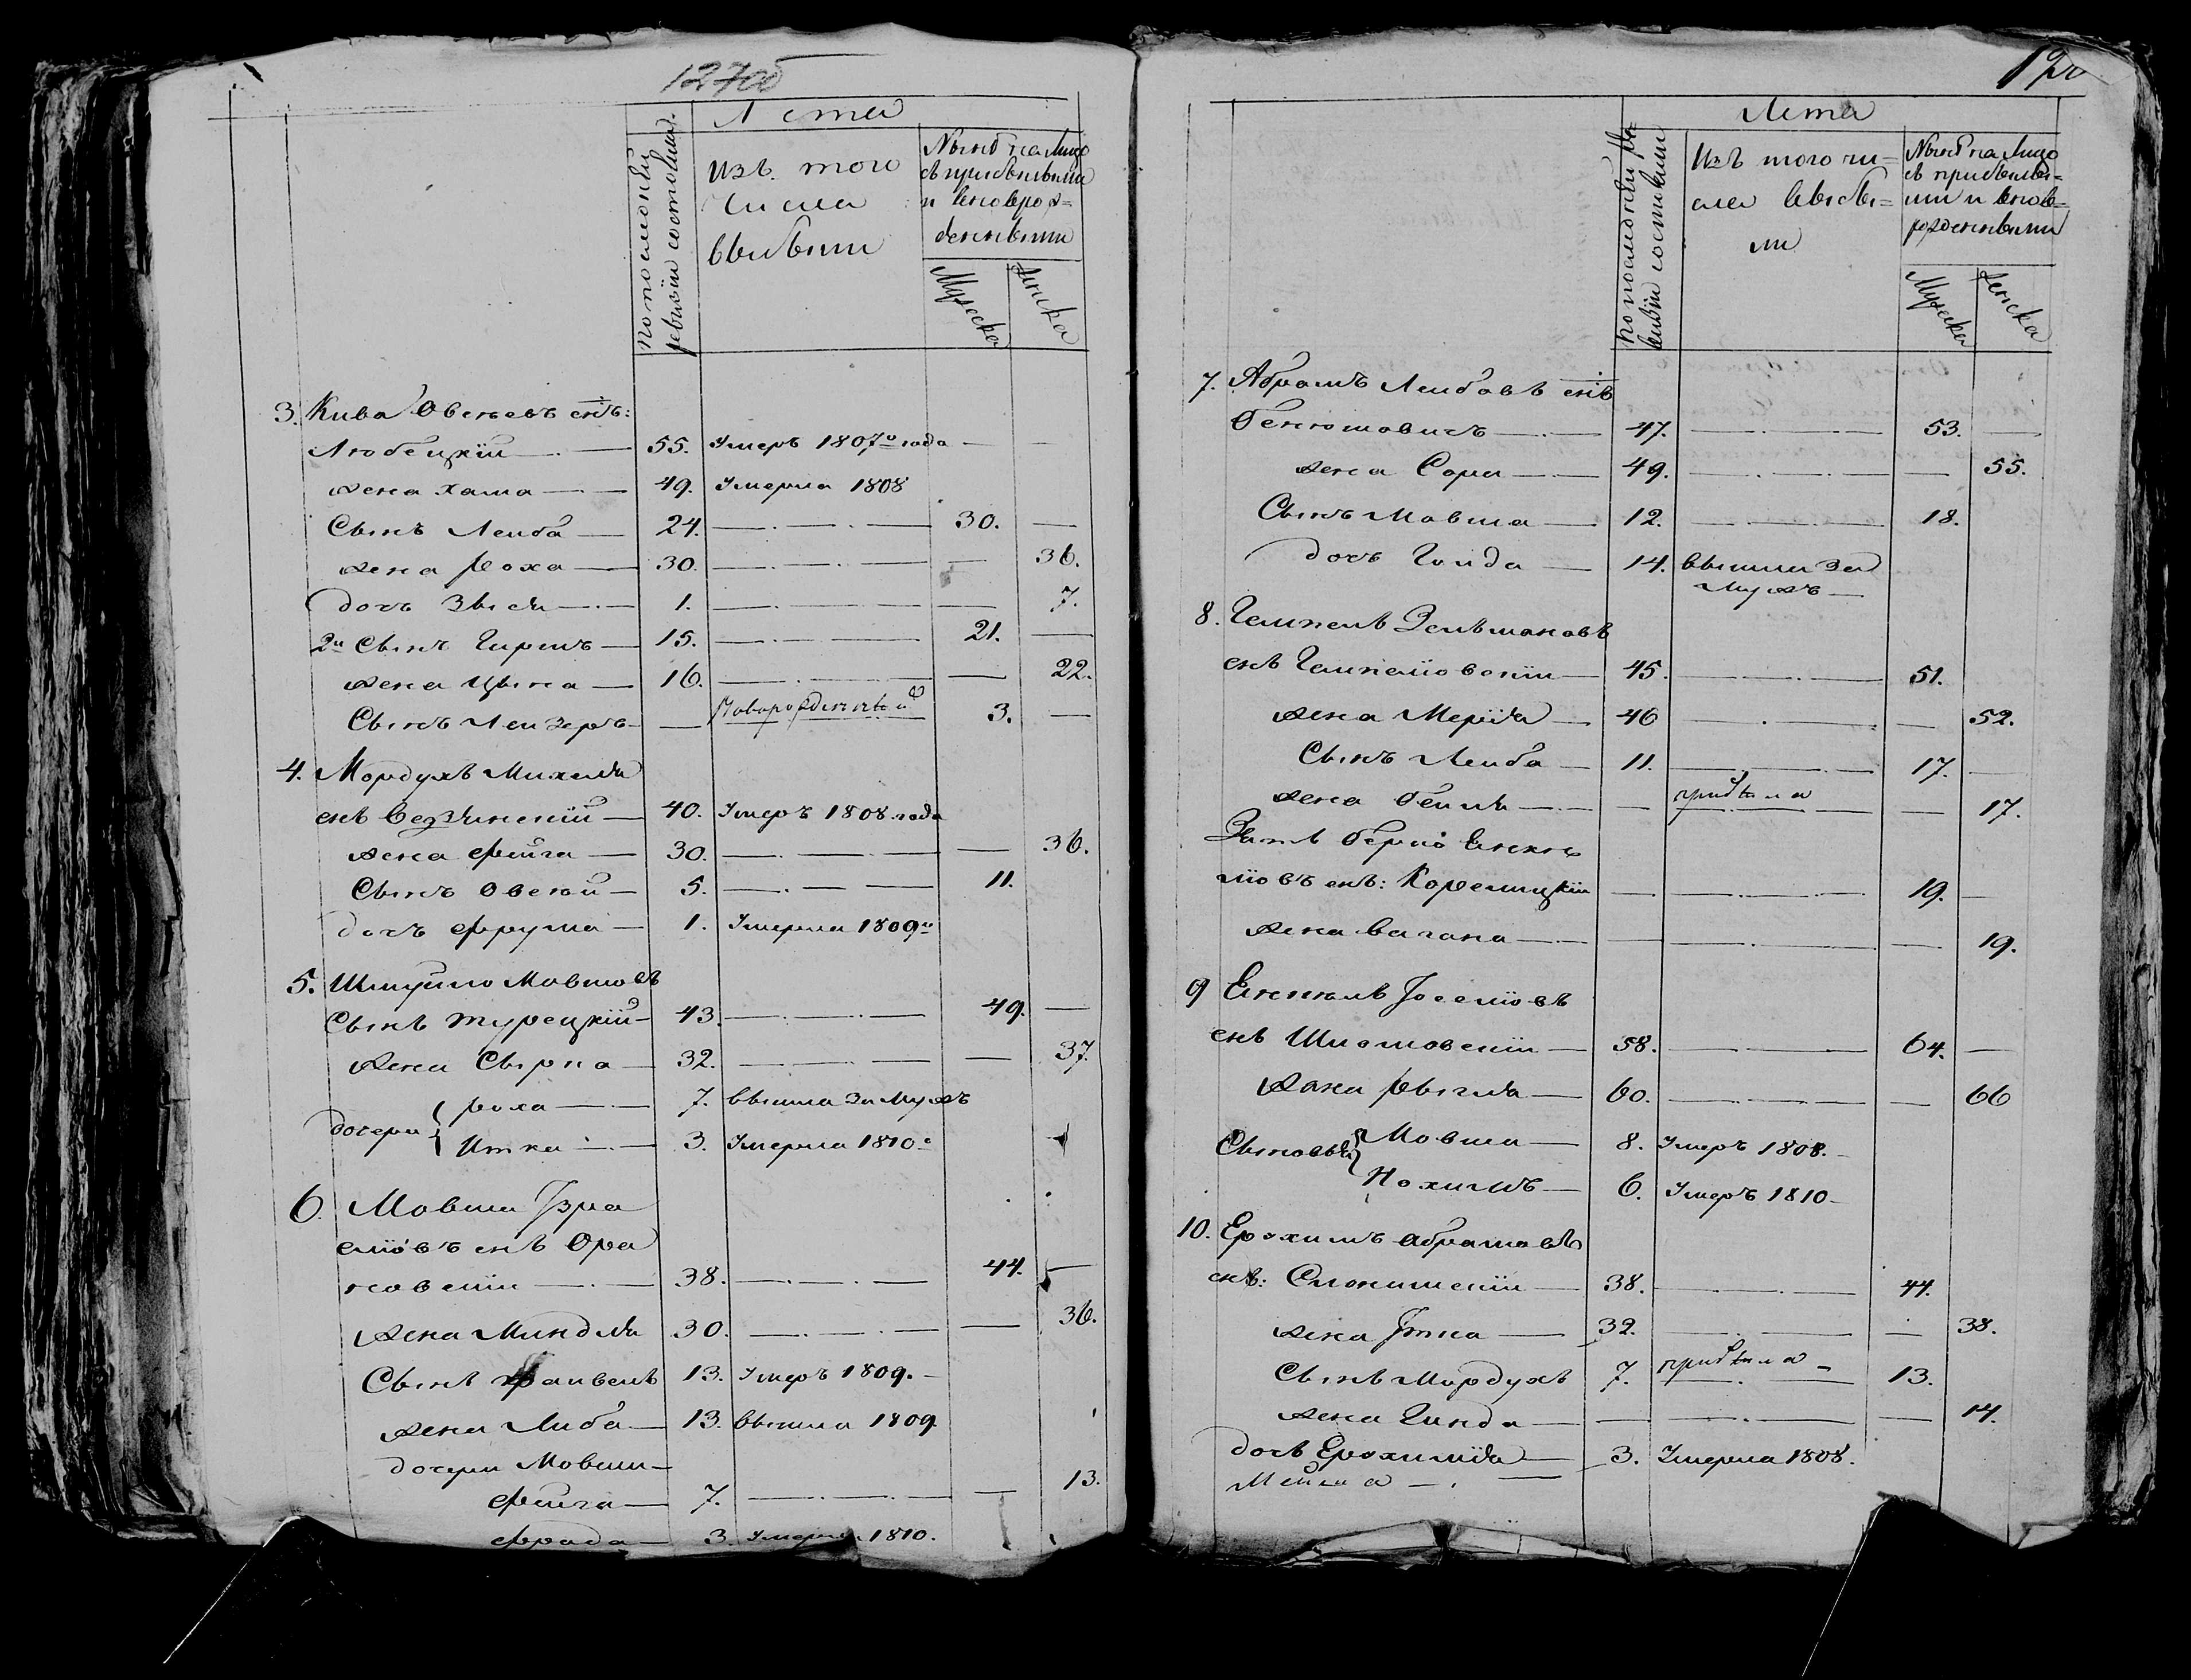 127об
Лета
по посмледней ревизіи состояли
изъ того числа выбыли
Ныне на лицо съ прибылыми и вновь рожденными
Мужеска
Женска
3. Кива Овсеевъ снъ:
Любецкій — 55. Умеръ 1807го года — —
жена Хама — 49. Умерла 1808
Сынъ Лейба — 24. — 30. —
жена Роха — 30. — — 36.
дочь Звися — 1. — — 7.
2й Сынъ Гиршъ — 15. — 21. —
жена Цыпа — 16. — — 22.
Сынъ Лейзеръ — — Новорожденный 3. —
4. Мордухъ Михеля
снъ — 40. Умеръ 1808 года
жена Фейга — 30. — — 36.
Сынъ Овсей — 5. — 11.
дочь Фрума — 1. Умерла 1809го
5. Шмуйло Мовшовъ
Сынъ Турецкій — 43. — 49. —
жена Сырка — 32. — — 37.
дочери { Роха — 7. вышла за мужъ
Итка — 3. Умерла 1810г
6. Мовша Израи
елiовъ снъ Ора
новскій — 38. — 44. —
жена Миндля 30. — — 36.
Сынъ Файвель 13. Умеръ 1809. —
жена Либа — 13. вышла 1809
дочери Мовши —
Фейга — 7. — — 13.
Фрада — 3. Умерла 1810.
Лета
по последней ревизіи состояли
Изъ того числа выбыли
Ныне на лицо съ прибылыми и вновь рожденными
Мужеска
Женска
7. Абрамъ Лейбовъ снъ
Бенюмовичъ — 47. — 53. —
жена Сора — 49. — — 55.
Сынъ Мовша — 12. — 18.
дочь Голда — 14. вышла за
мужъ —
8. Гемпель Зельмановъ
снъ Гемпелiовскiй — 45. — 51.
жена Мерiя — 46 — — 52.
Сынъ Лейба — 11. — 17. —
жена Бейля — — прибыла — 17.
Зять Берко Енкк
лiовъ снъ: Корелицкій — — 19. —
жена Вагана — — — — 19.
9 Енкель Iоселiовъ
снъ Шломовскій — 58. — 64. —
жена Рыгля — 60. — — 66
Сыновья { Мовша — 8. Умеръ 1808. —
Нохимъ — 6. Умеръ 1810 —
10. Ерохимъ Абрамовъ
снъ: Слонимскій — 38. — 44.
жена Iтка — 32. — — 38.
Сынъ Мордухъ 7. прибыла — 13.
жена Гинда — — — — 14.
дочь Ерохимiя — 3. Умерла 1808.